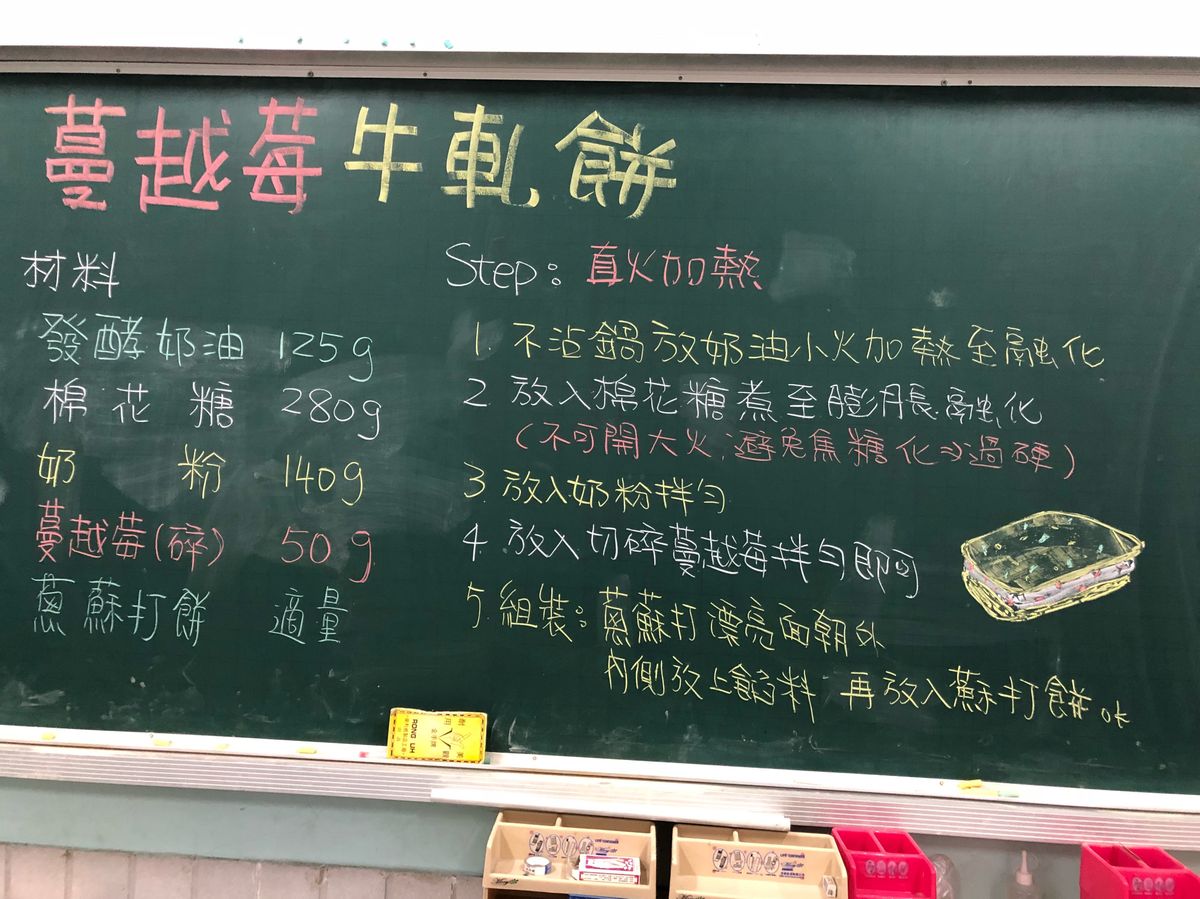 蔓越莓牛軋餅
材料
發酵奶油 125g
棉花糖 280g
奶粉 140g
蔓越莓(碎) 50g
蔥蘇打餅 適量
Step：直火加熱
1. 不沾鍋放奶油小火加熱至融化
2 放入棉花糖煮至膨脹融化
(不可開大火;避免焦糖化⇒過硬)
3 放入奶粉拌勻
4. 放入切碎蔓越莓拌勻即可
5. 組裝：蔥蘇打漂亮面朝外
內側放上餡料 再放入蘇打餅 ok
RONG LIH